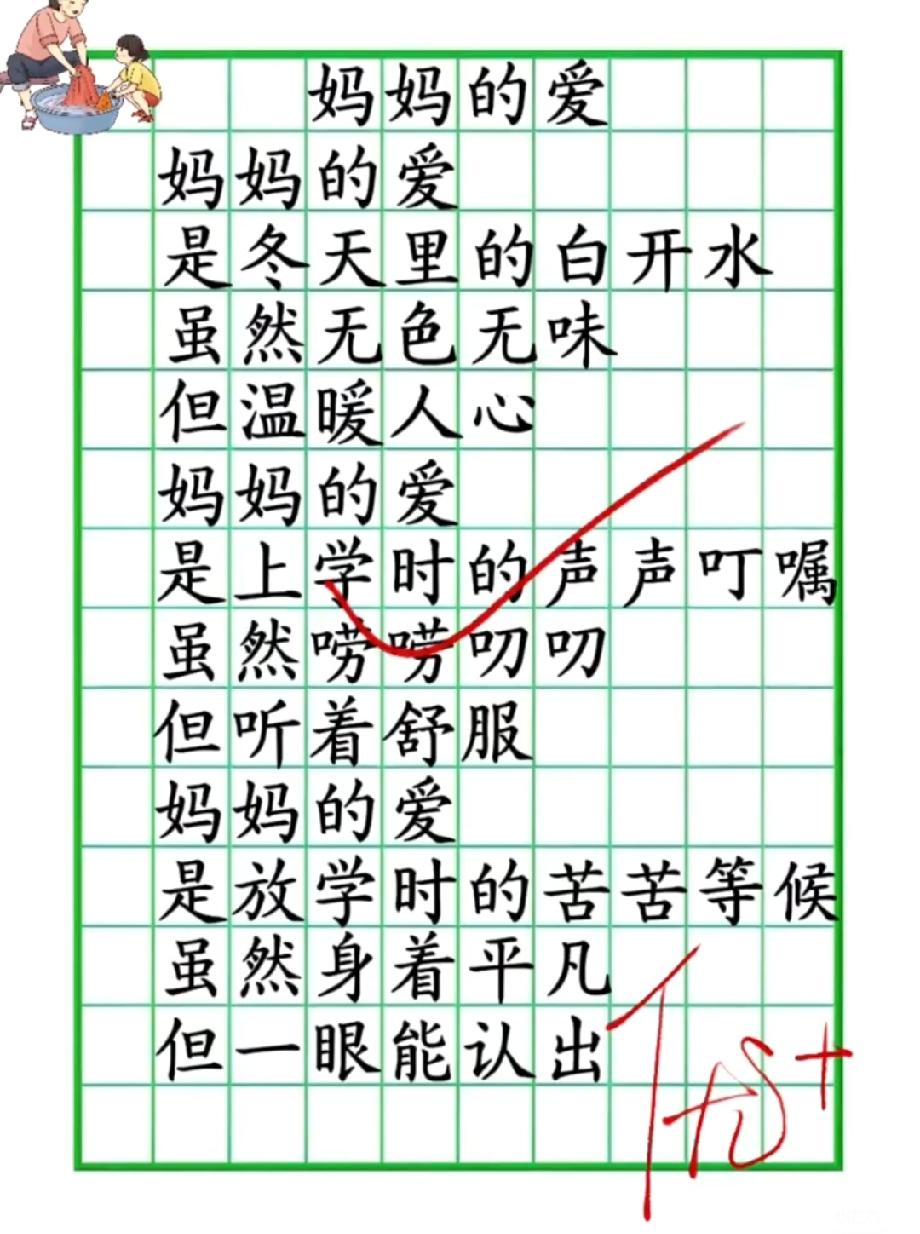 妈妈的爱
妈妈的爱
是冬天里的白开水
虽然无色无味
但温暖人心
妈妈的爱
是上学时的声声叮嘱
虽然唠唠叨叨
但听着舒服
妈妈的爱
是放学时的苦苦等候
虽然身着平凡
但一眼能认出
优+